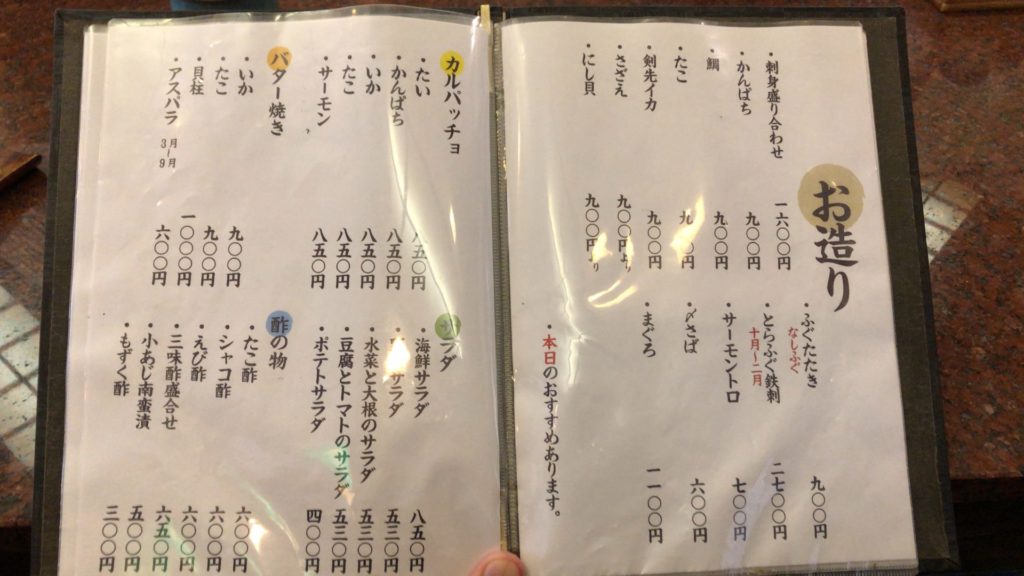 お造り
・刺身盛り合わせ 一六〇〇円
・かんぱち 九〇〇円
・鯛 九〇〇円
・たこ 九〇〇円
・剣先イカ 九〇〇円
・さざえ 九〇〇円より
・にし貝 九〇〇円より
・ふぐたたき 九〇〇円
なしふぐ
・とらふぐ鉄刺 二七〇〇円
十月〜二月
・サーモントロ 七〇〇円
・〆さば 六〇〇円
・まぐろ 一一〇〇円
・本日のおすすめあります。
カルパッチョ
・たい 八五〇円
・かんぱち 八五〇円
・いか 八五〇円
・たこ 八五〇円
・サーモン 八五〇円
バター焼き
・いか 九〇〇円
・たこ 九〇〇円
・貝柱 一〇〇〇円
・アスパラ 3月-9月 六〇〇円
サラダ
・海鮮サラダ 八五〇円
サラダ 五三〇円
・水菜と大根のサラダ 五三〇円
・豆腐とトマトのサラダ 五三〇円
・ポテトサラダ 四〇〇円
酢の物
・たこ酢 六〇〇円
・シャコ酢 六〇〇円
・えび酢 六〇〇円
・三味酢盛合せ 六五〇円
・小あじ南蛮漬 五〇〇円
・もずく酢 三〇〇円